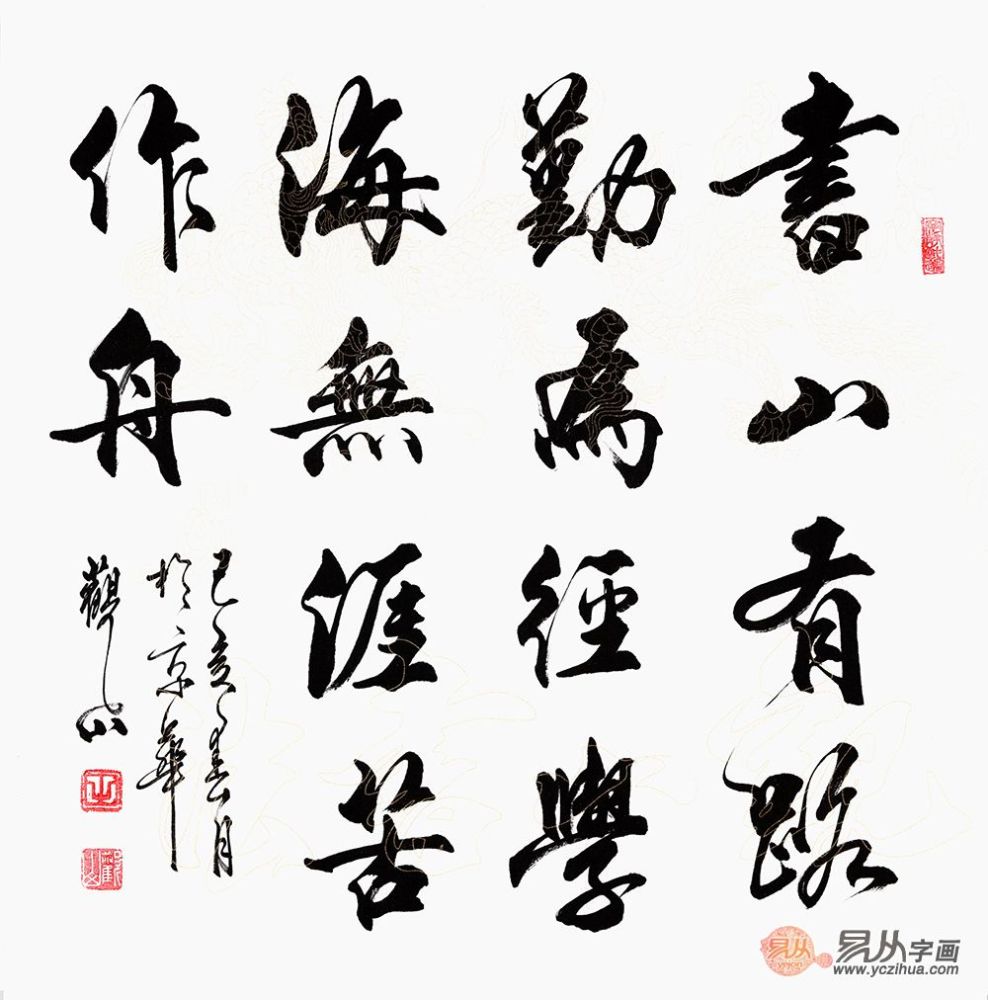 書山有路
勤為徑學
海無涯苦
作舟
己亥年春月
於京華
觀山
易从字画
www.yczihua.com